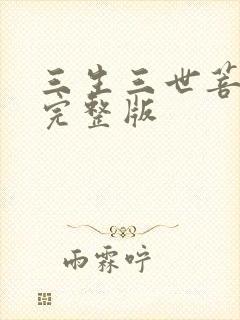 三生三世菩
完整版
雨霖咛